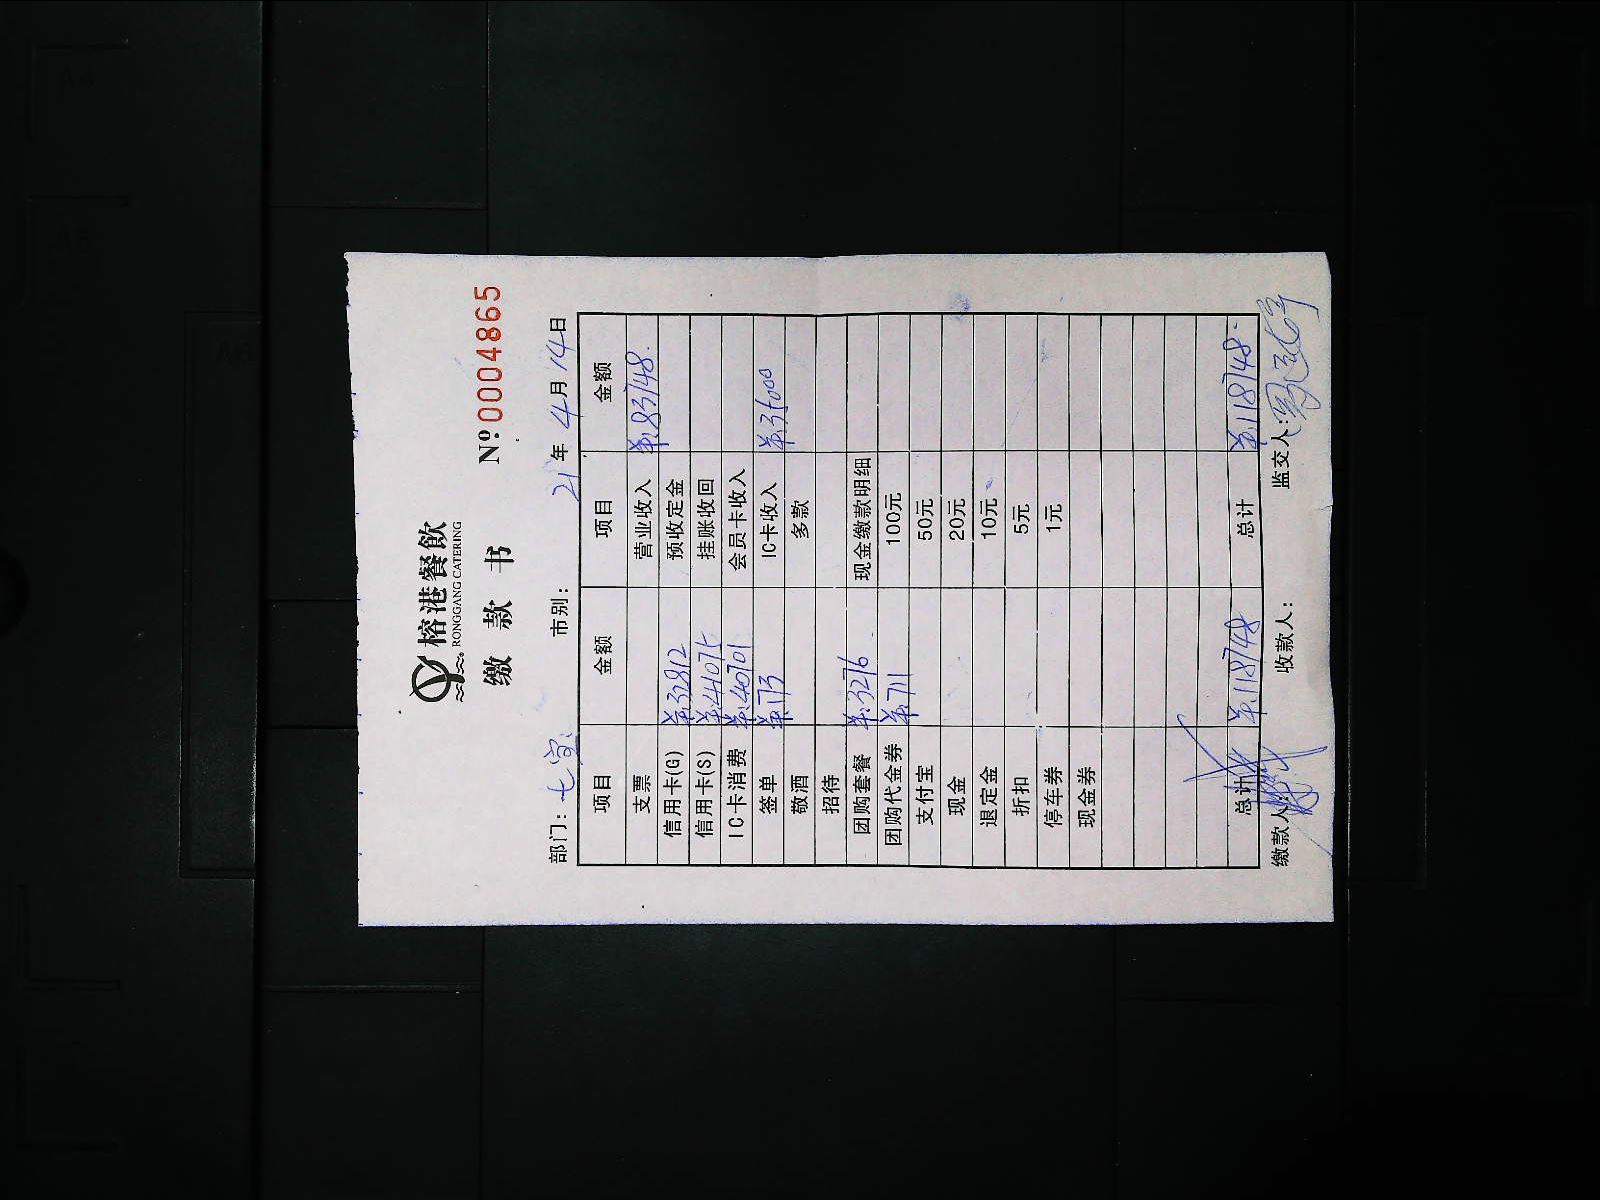 榕港餐飲
RONGGANG CATERING
缴 款 书 Nº:0004865
部门：七宝 市别： 21年 4月 14日
项目 金额 项目 金额
支票 营业收入 ¥:83748.
信用卡(G) ¥:32812 预收定金
信用卡(S) ¥:41075 挂账收回
IC卡消费 ¥:40701 会员卡收入
签单 ¥:173 IC卡收入 ¥:35000
敬酒 多款
招待
团购套餐 ¥:3276 现金缴款明细
团购代金券 ¥:711 100元
支付宝 50元
现金 20元
退定金 10元
折扣 5元
停车券 1元
现金券
总计 ¥:118748 总计 ¥:118748-
缴款人： 收款人： 监交人：